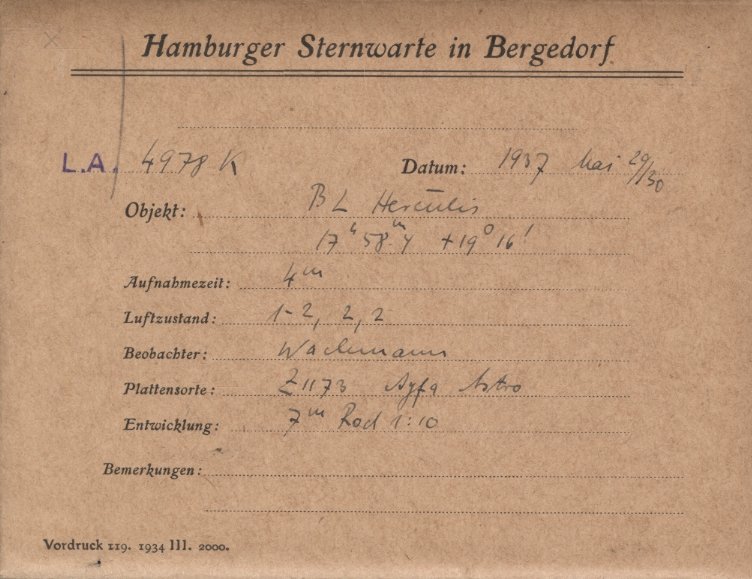 Hamburger Sternwarte in Bergedorf
L.A. 4978 K Datum: 1937 Mai 29/30
Objekt: BL Herculis
17ʰ 58ᵐ.4 +19° 16'
Aufnahmezeit: 4ᵐ
Luftzustand: 1-2, 2, 2
Beobachter: Wachmann
Plattensorte: Z1173 Agfa Astro
Entwicklung: 7ᵐ Rod 1:10
Bemerkungen:
Vordruck 119. 1934 III. 2000.